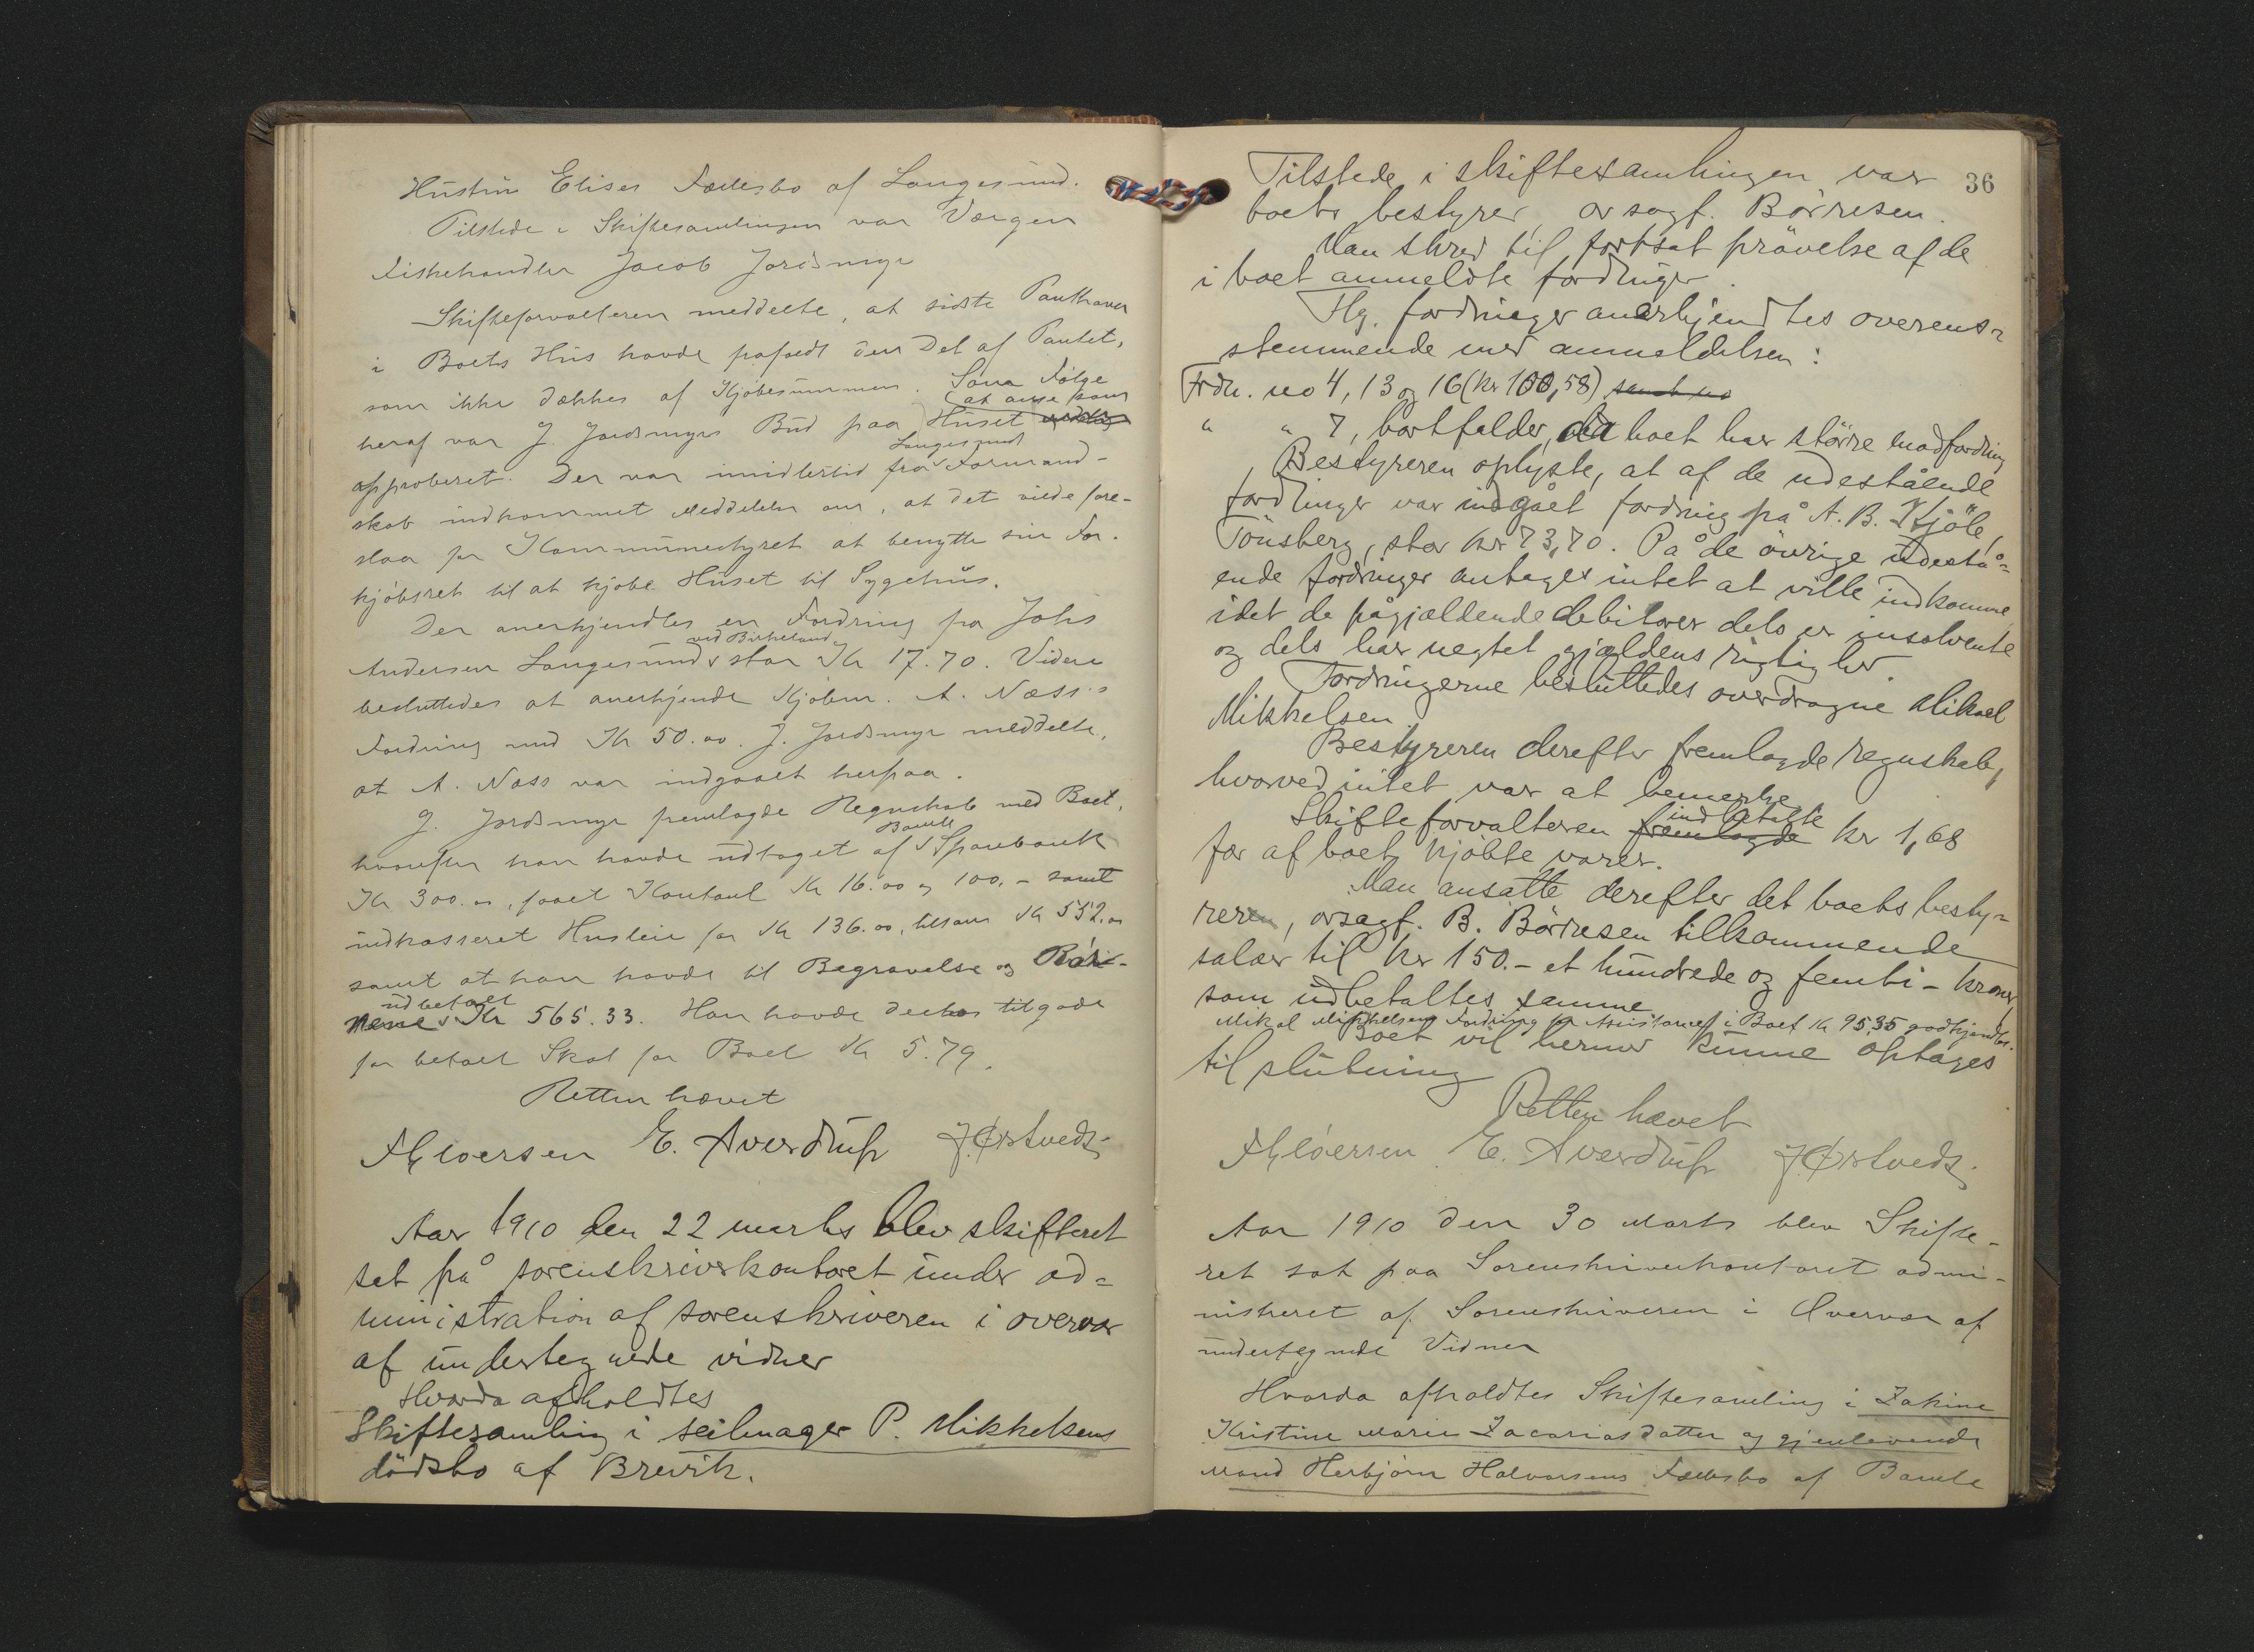 Hustru Elises Fællesbo af Langesund.
Tilstede i Skiftesamlingen var Værgen
Fiskehandler Jacob Jordsmyr
Skifteforvalteren meddelte, at sidste Panthaver
i Boets Hus havde frafaldt den Del af Pantet,
som ikke dækkes af Kjøbesummen. Som Følge
at anse som
heraf var J. Jordsmyrs Bud paa Huset
Langesunds
approberet. Der var imidlertid fra Formand-
skab indkommet Meddelelse om, at det vilde fore-
slaa for Kommunestyret at benytte sin For-
kjøbsret til at kjøbe Huset til Sygehus.
Der anerkjendtes en Fordring fra Johs
ved Birkeland
Andersen Langesund stor Kr 17.70. Videre
besluttedes at anerkjende Kjøbm. A. Næss's
Fordring med Kr 50.00. J. Jordsmyr meddelte,
at A. Næss var indgaaet herpaa.
J. Jordsmyr fremlagde Regnskab med Boet,
Bamble
hvorefter han havde udtaget af Sparebank
Kr 300.00, faaet Kontant Kr 16.00 og 100.- samt
indkasseret Husleie for Kr 136.00, tilsam Kr 552.00
samt at han havde til Begravelse og
udbetalt
Kr 565.33. Han havde derhos tilgode
for betalt Skat for Boet Kr 5.79.
Retten hævet
E. Averdrup J. Ørstvedt
Aar 1910 den 22 marts blev skifteret
sat på sorenskriverkontoret under ad=
ministration af sorenskriveren i overvær
af undertegnede vidner
Hvorda afholdtes
Skiftesamling i seilmager P. Mikkelsens
dødsbo af Brevik.
36
Tilstede i skiftesamlingen var
boets bestyrer, orsagf. Børresen.
Man skred til fortsat prøvelse af de
i boet anmeldte fordringer.
Flg. fordringer anerkjendtes overens=
stemmende med anmeldelsen:
Frdr. no 4, 13 og 16 (kr 100,58) samt no
" " 7, bortfalder, da boet har større modfordring
Bestyreren oplyste, at af de udestående
fordringer var indgået fordring på A. B. Kjøle,
Tønsberg, stor kr 73,70. På de øvrige udestå=
ende fordringer antages intet at ville indkomme
idet de pågjældende debitorer dels er insolvente
og dels har negtet gjældens rigtighed.
Fordringerne besluttedes overdragne Mikael
Mikkelsen.
Bestyreren derefter fremlagde regnskab,
hvorved intet var at bemerke.
indbetalte
Skifteforvalteren fremlagde kr 1,68
for af boet kjøbte varer.
Man ansatte derefter det boets besty=
reren, orsagf. B. Børresen tilkommende
salær til kr 150.- et hundrede og femti - kroner,
som udbetaltes samme.
Mikal Mikkelsens Fordring for Assistance i Boet Kr 95,35 godkjendtes.
Boet vil hermed kunne optages
til slutning
Retten hævet
E. Averdrup J. Ørstvedt
Aar 1910 den 30 Marts blev Skifte-
ret sat paa Sorenskriverkontoret admi-
nistreret af Sorenskriveren i Overvær af
undertegnede Vidner
Hvorda afholdtes Skiftesamling i Zakine
Kristine Marie Zacariasdatter og gjenlevende
Mand Herbjørn Halvorsens Fællesbo af Bamle